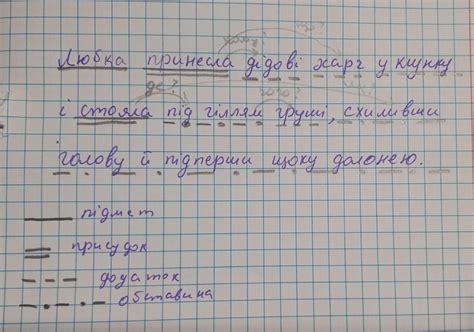 Любка принесла дідові харч у клунку
де?
і стояла під гіллям груші, схиливши
голову й підперши щоку долонею.
підмет
присудок
додаток
обставина